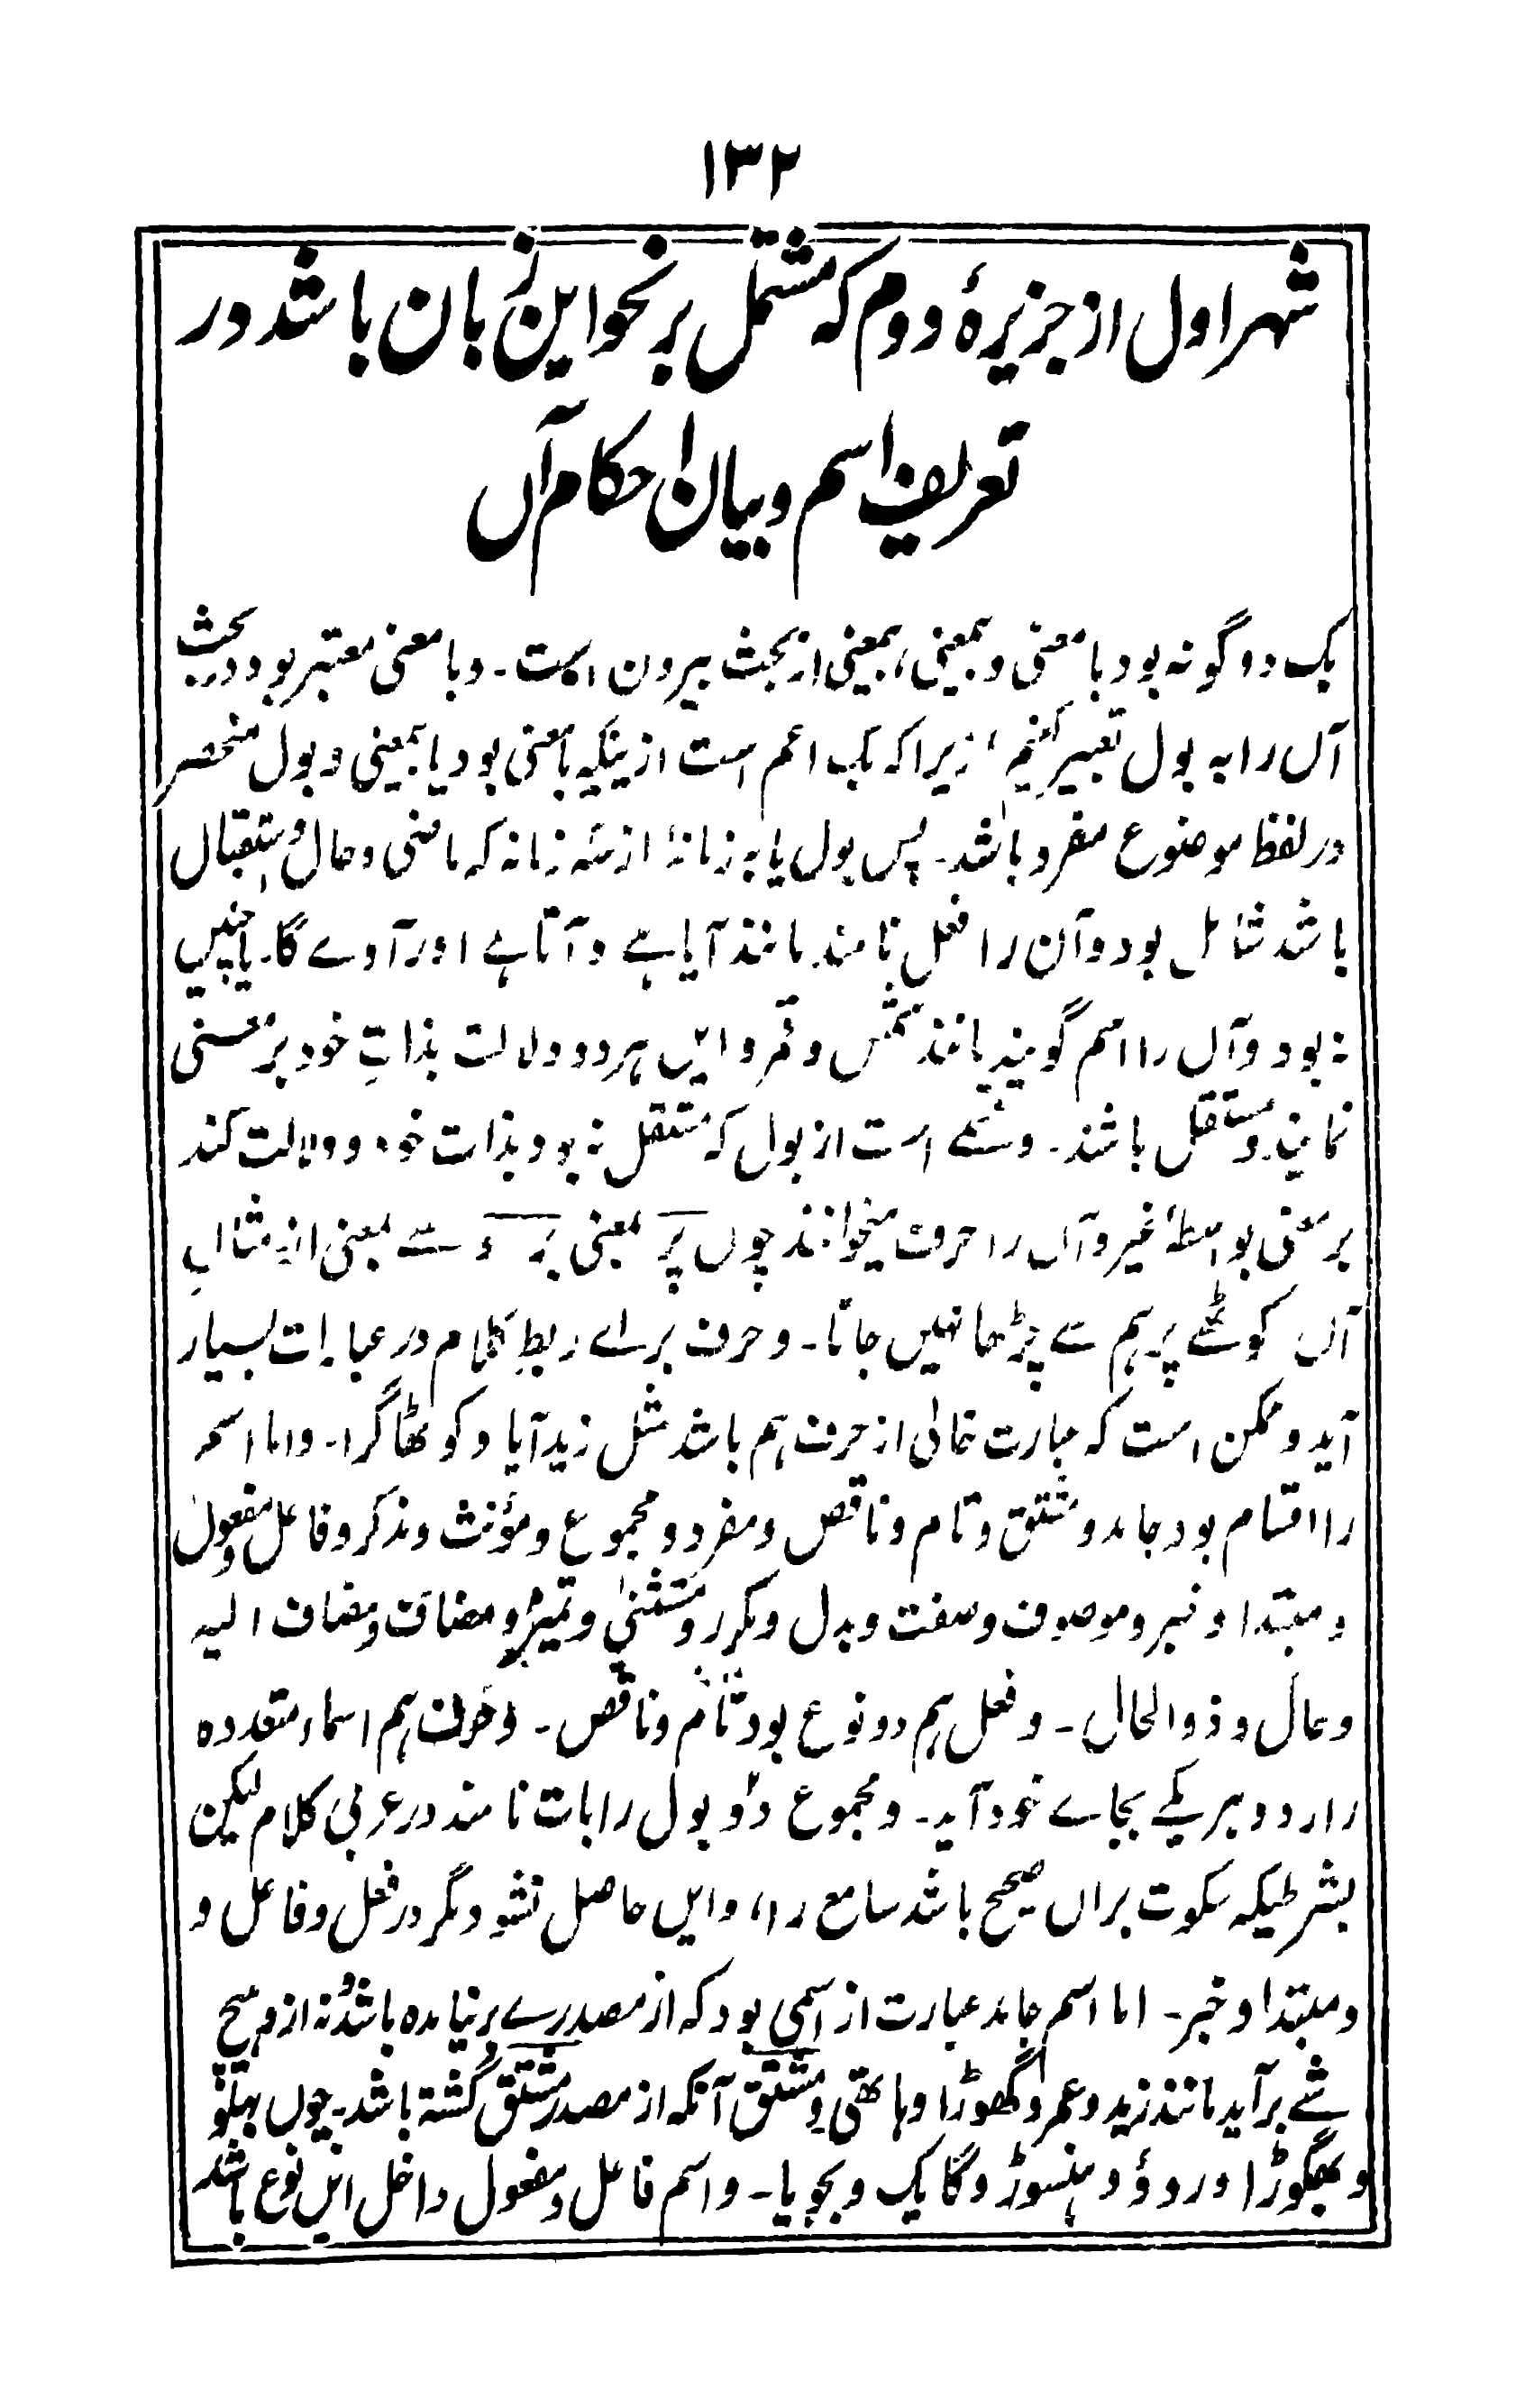 ۱۳۲
شہر اول از جزیرۂ دوم کہ مشتمل بر نحو این زبان باشد در
تعریف اسم و بیان احکام آں
بک دو گونہ بود با معنی و بمعینی، بمعینی از بحث بیرون است۔ و با معنی معتبر بود در بحث
آں را بہ بول تعبیر کنیم، زیرا کہ بک اعم است ازینکہ بامعنی بود یا بمعینی و بول منحصر
در لفظ موضوع مفرد باشد۔ پس بول یا بہ زمانۂ از سہ زمانہ کہ ماضی و حال و استقبال
باشد شامل بود و آن را فعل نامند مانند آیا ہے و آتا ہے اور آوے گا۔ یا چنیں
نہ بود و آں را اسم گویند مانند شمس و قمر و ایں ہر دو دلالت بذاتِ خود بر معنی
نمایند و مستقل باشند۔ و شے است از بول کہ مستقل نہ بود بذات خود و دلالت کند
بر معنی بواسطۂ غیر و آں را حرف میخوانند چوں پر بمعنی بر و سے بمعنی از۔ مثالِ
آں کوٹھے پر ہم سے چڑھا نہیں جاتا۔ و حرف براے ربطِ کلام در عبارات بسیار
آید و ممکن است کہ عبارت خالی از حرف ہم باشد مثل زید آیا و کوٹھا گرا۔ و اما اسم
را اقسام بود جامد و مشتق و تام و ناقص و مفرد و مجموع و مؤنث و مذکر و فاعل و مفعول
و مبتدا و خبر و موصوف و صفت و بدل و مکرر و مستثنیٰ و تمیز و مضاف و مضاف الیہ
و حال و ذو الحال۔ و فعل ہم دو نوع بود تام و ناقص۔ و حرف ہم اسماء متعددہ
دارد و ہر یکے بجاے خود آید۔ و مجموع دو بول را بات نامند در عربی کلام لیکن
بشرطیکہ سکوت براں صحیح باشد سامع را، و ایں حاصل نشود مگر در فعل و فاعل و
و مبتدا و خبر۔ اما اسم جامد عبارت از اسمی بود کہ از مصدرے برنیامدہ باشد و نہ ازو ہیچ
شے برآید مانند زید و عمر و گھوڑا و ہاتھی و مشتق آنکہ از مصدر مشتق گشتہ باشد۔ چوں
و بھگوڑا و ردؤ و ہنسوڑ و گایک و بجویا۔ و اسم فاعل و مفعول داخل ایں نوع باشد